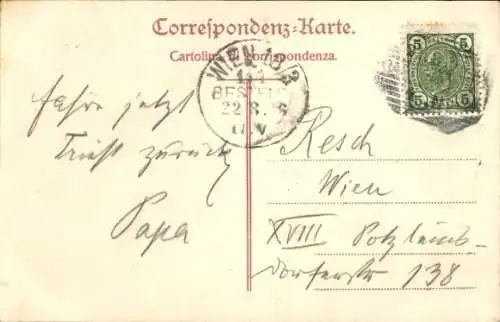 Correspondenz-Karte.
Cartolina di corrispondenza.
5 5
5 5
WIEN 18/2
BESTELLT
22 8
fahre jetzt
Triest zurück
Papa
Resch
Wien
XVIII Potzleins-
dorferstr 138